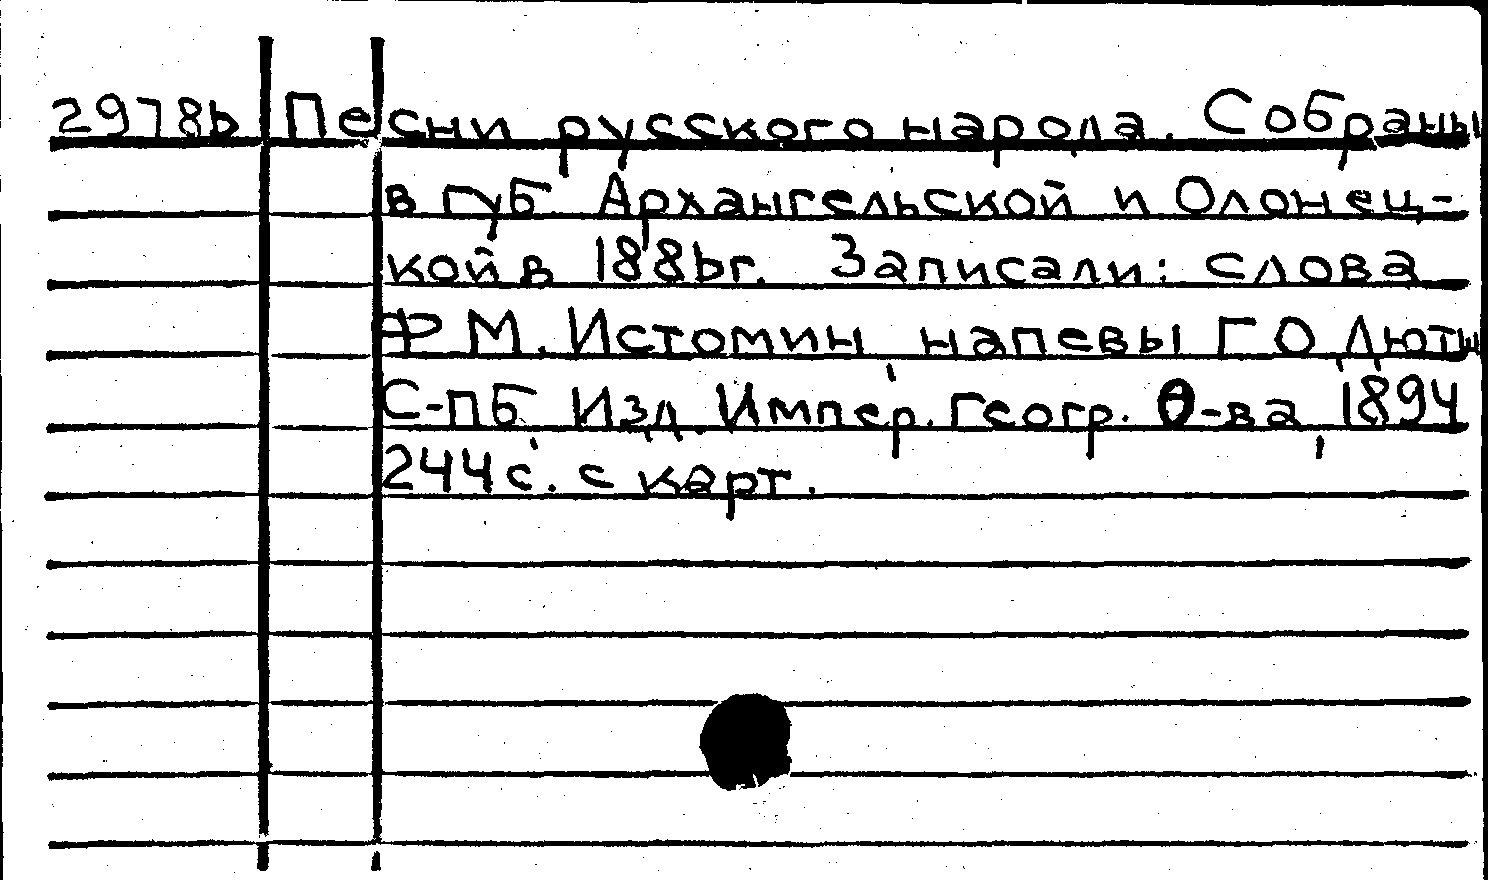 29786 Песни русского народа. Собраны
в губ Архангельской и Олонец-
кой в 1886г. Записали: слова
Ф М. Истомин, напевы Г О Дютш
С-пб Изд. Импер. Геогр. О-ва, 1894
244с. с карт.